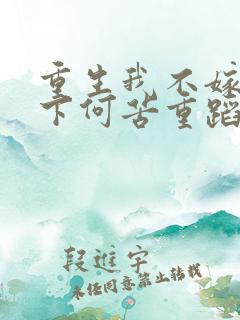 重生我不嫁
下何苦重蹈
段进宇
未经同意禁止转载